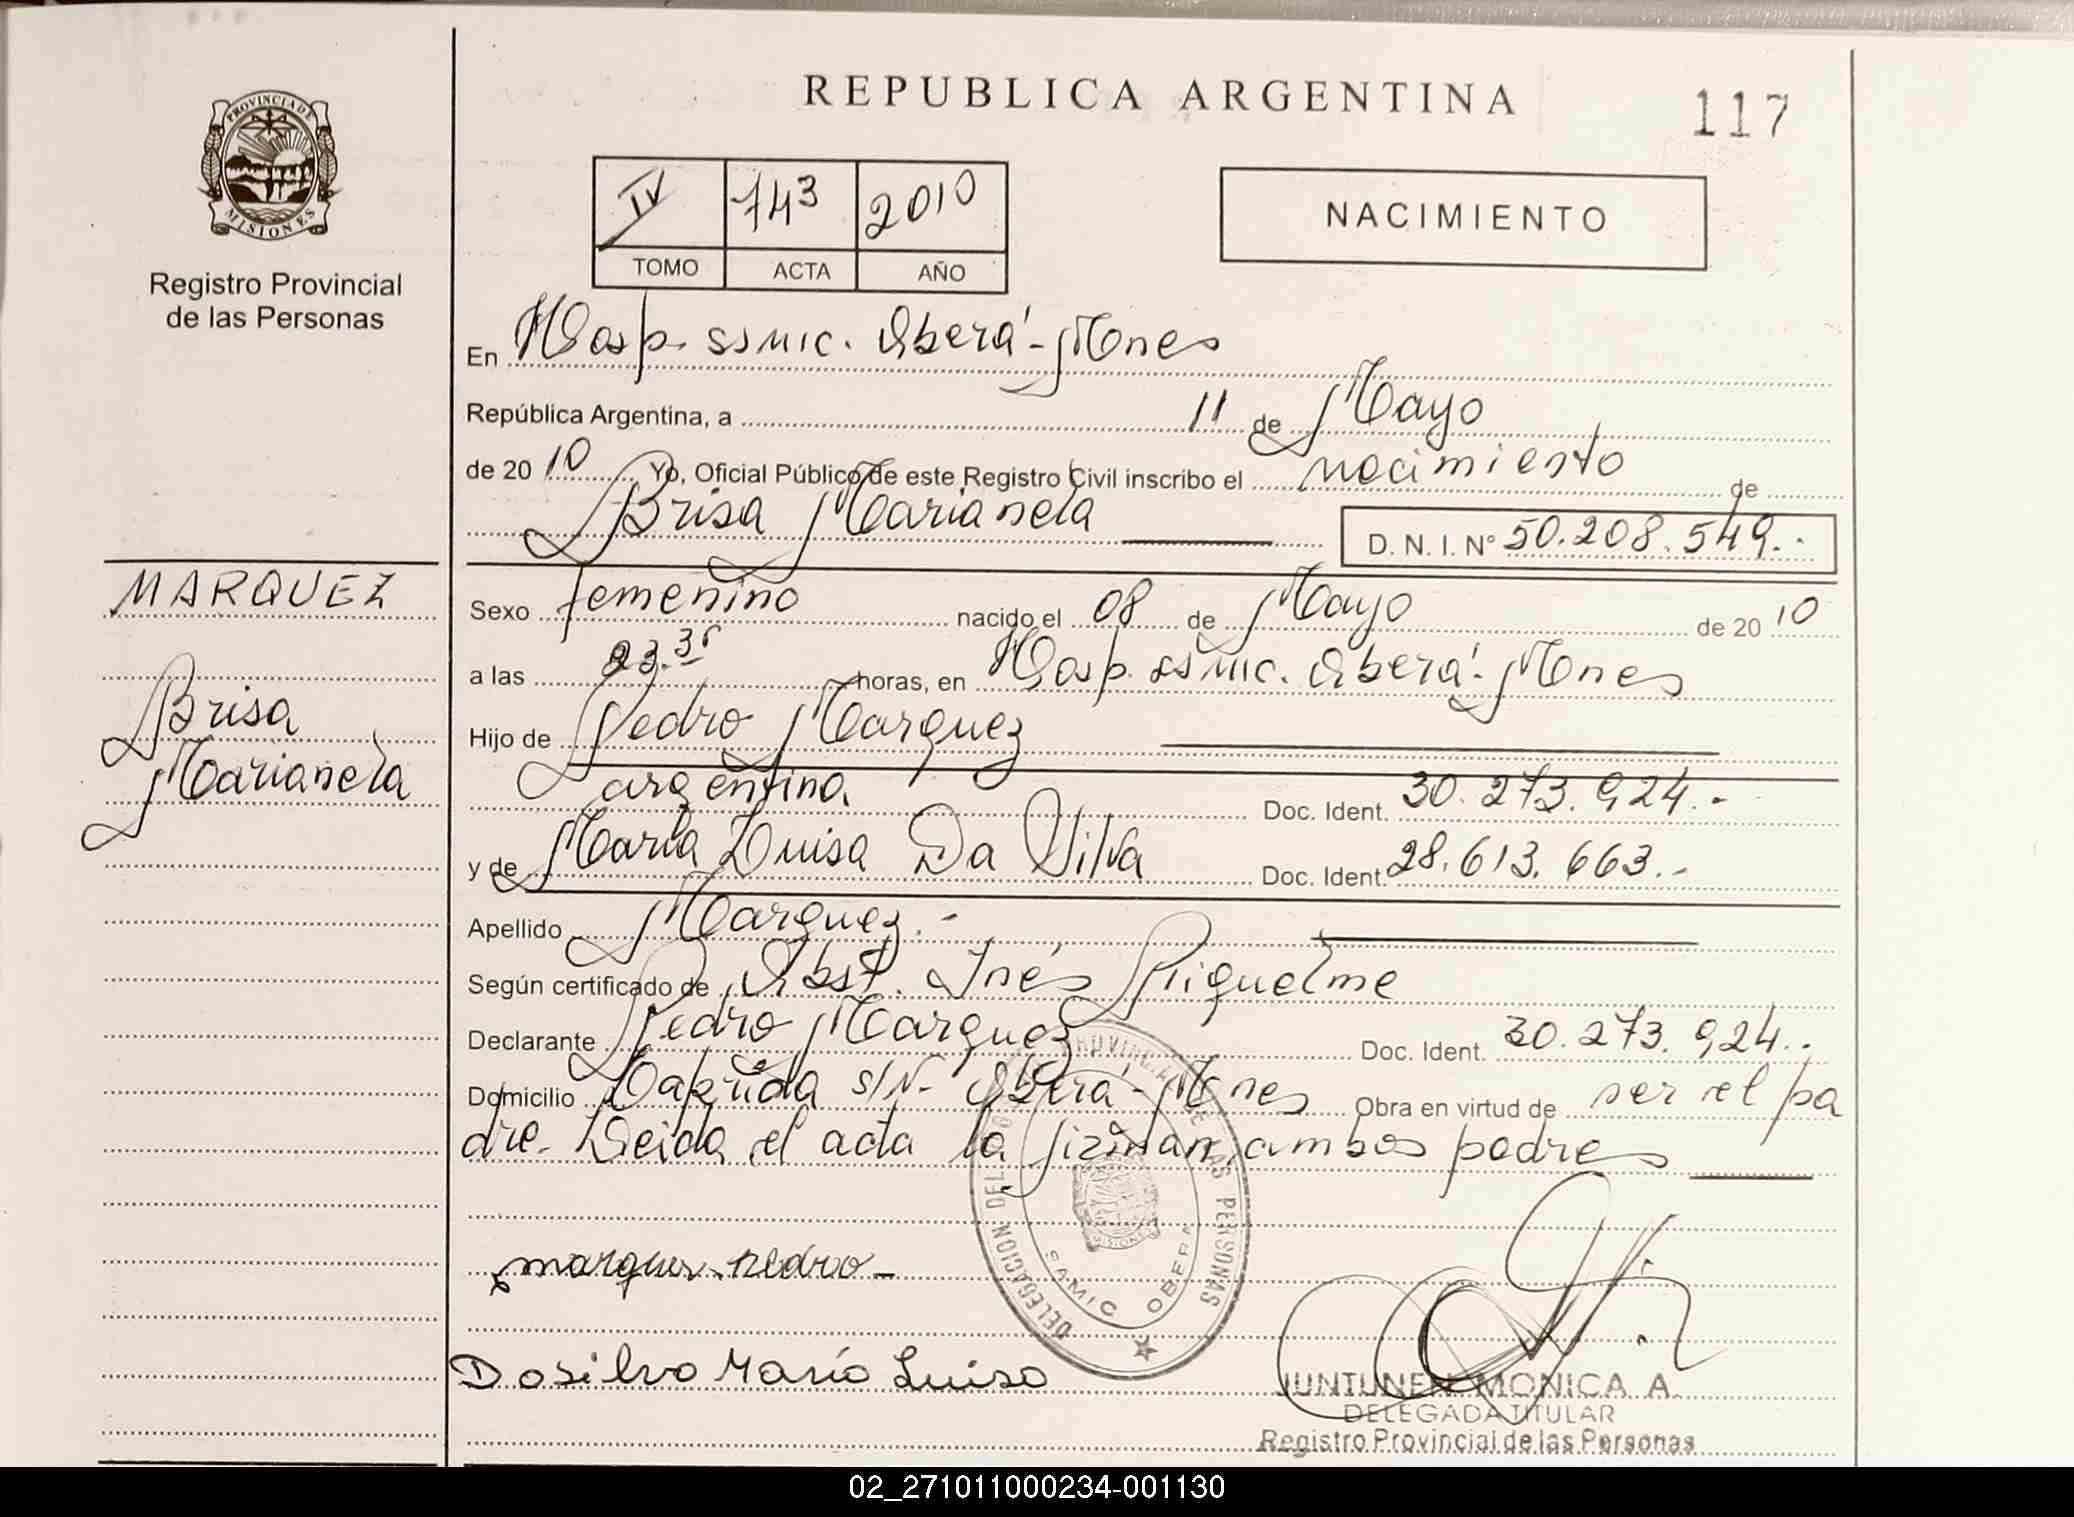 REPUBLICA ARGENTINA
117
PROVINCIA DE
MISIONES
Registro Provincial
de las Personas
IV 743 2010
TOMO ACTA AÑO
NACIMIENTO
En Hosp. SSMIC. Oberá - Mnes
República Argentina, a 11 de Mayo
de 20 10 Yo, Oficial Público de este Registro Civil inscribo el nacimiento de
Brisa Marianela D. N. I. Nº 50.208.549.-
MARQUEZ
Brisa
Marianela
Sexo femenino nacido el 08 de Mayo de 20 10
a las 23.35 horas, en Hosp. SSMIC. Oberá - Mnes
Hijo de Pedro Marquez
argentina. Doc. Ident. 30.273.924.-
y de Maria Luisa Da Silva Doc. Ident. 28.613.663.-
Apellido Marquez.-
Según certificado de Obst. Inés Riquelme
Declarante Pedro Marquez Doc. Ident. 30.273.924.-
Domicilio Laprida S/N- Oberá - Mnes Obra en virtud de ser el pa
dre. Leida el acta la firman ambos padres
marquez pedro
Dasilva María Luisa
DELEGACION DEL PROVINCIAL DE LAS PERSONAS
MISIONES
SAMIC OBERA
JUNTUNEN MONICA A.
DELEGADA TITULAR
Registro Provincial de las Personas
02_271011000234-001130